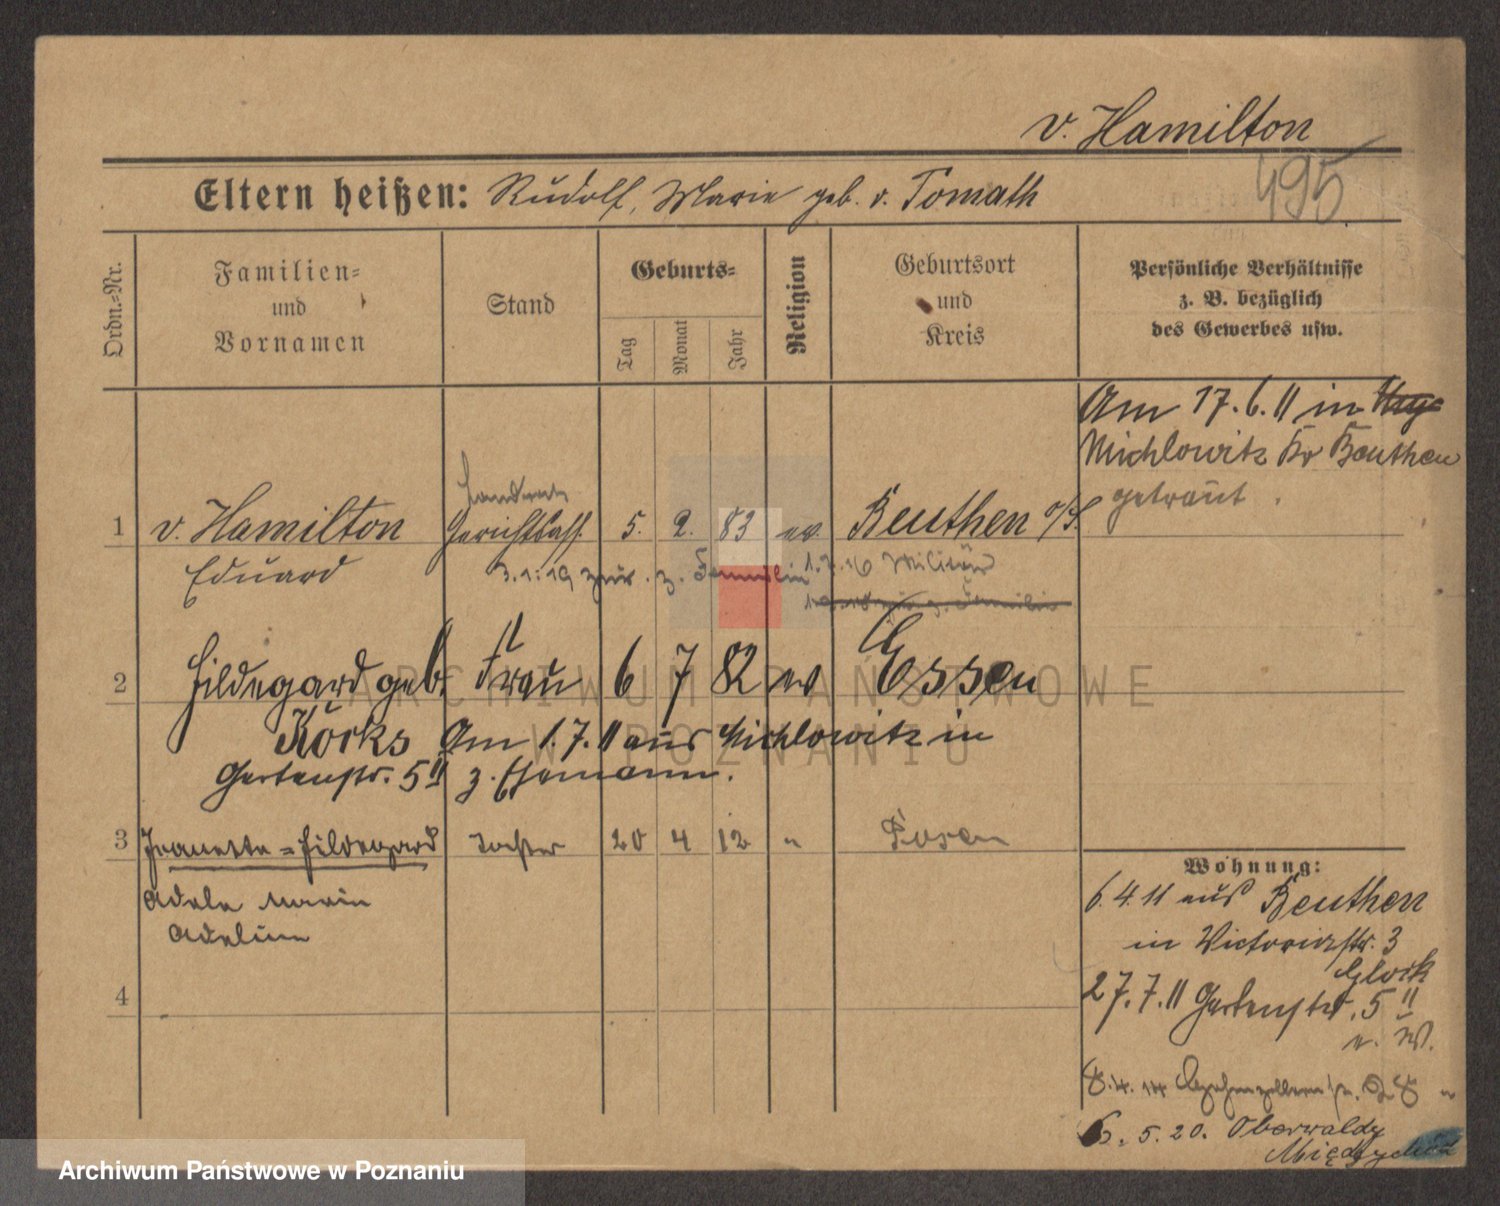 v. Hamilton
495
Eltern heißen: Rudolf, Marie geb. v. Tomath
Ordn.=Nr.
Familien=
und
Vornamen
Stand
Geburts=
Tag
Monat
Jahr
Religion
Geburtsort
und
Kreis
Persönliche Verhältnisse
z. B. bezüglich
des Gewerbes usw.
Am 17.6.11 in
Michlowitz Kr Beuthen
getraut.
Landrat
1 v. Hamilton Gerichtsass. 5. 2. 83 ev. Beuthen o/S.
Eduard 3.1.19 zur. z. Familie 1. 16 Militär
2 Hildegard geb. Frau 6 7 82 ev Essen
Körks Am 1.7.11 aus Michlowitz in
Gartenstr. 5 II z. Ehemann.
3 Jeanette=Hildegard Tochter 20 4 12 " Posen
Adele Marie
Adeline
4
Wohnung:
6.4.11 aus Beuthen
in Victoriastr. 3
Glock
27.7.11 Gartenstr. 5 II
v. W.
8.4.14 Hohenzollernstr. 28
6. 5. 20. Oberwaldy
Międzychód
ARCHIWUM PAŃSTWOWE
W POZNANIU
Archiwum Państwowe w Poznaniu